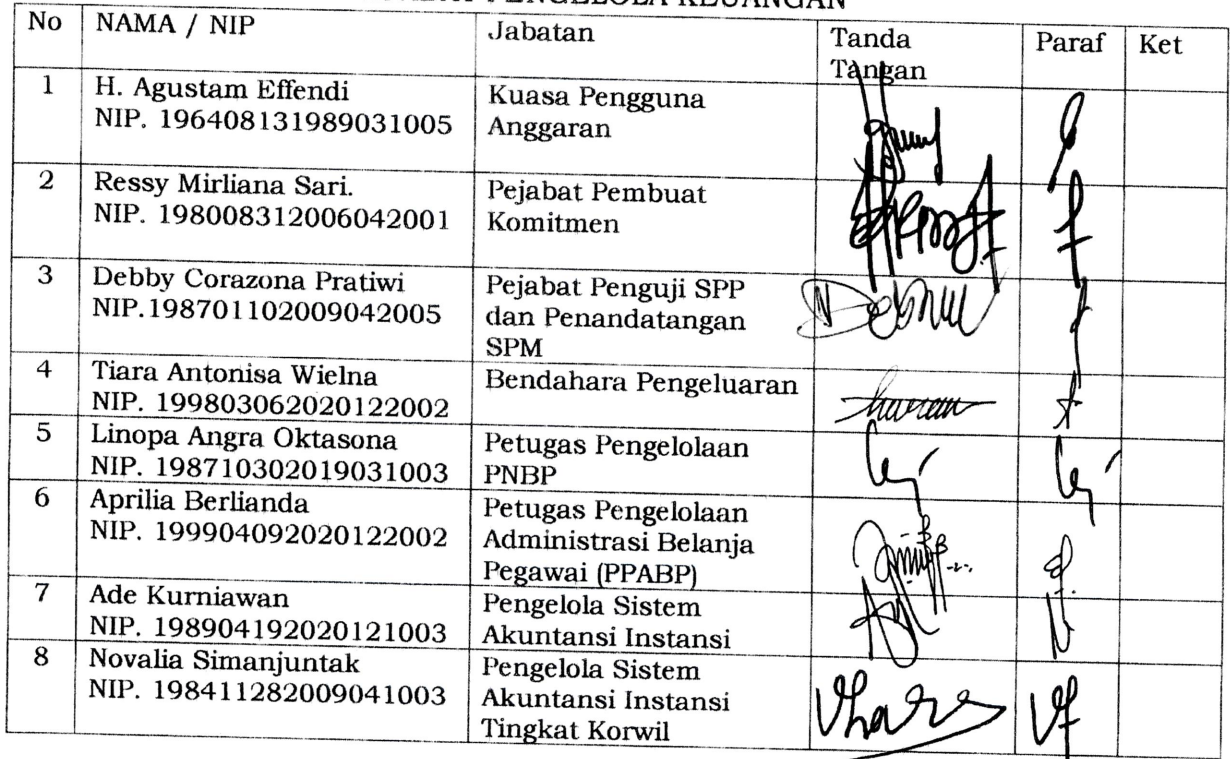 PENGELOLA KEUANGAN
No NAMA / NIP Jabatan Tanda Tangan Paraf Ket
1 H. Agustam Effendi
NIP. 196408131989031005
Kuasa Pengguna
Anggaran
2 Ressy Mirliana Sari.
NIP. 198008312006042001
Pejabat Pembuat
Komitmen
3 Debby Corazona Pratiwi
NIP.198701102009042005
Pejabat Penguji SPP
dan Penandatangan
SPM
4 Tiara Antonisa Wielna
NIP. 199803062020122002
Bendahara Pengeluaran
5 Linopa Angra Oktasona
NIP. 198710302019031003
Petugas Pengelolaan
PNBP
6 Aprilia Berlianda
NIP. 199904092020122002
Petugas Pengelolaan
Administrasi Belanja
Pegawai (PPABP)
7 Ade Kurniawan
NIP. 198904192020121003
Pengelola Sistem
Akuntansi Instansi
8 Novalia Simanjuntak
NIP. 198411282009041003
Pengelola Sistem
Akuntansi Instansi
Tingkat Korwil